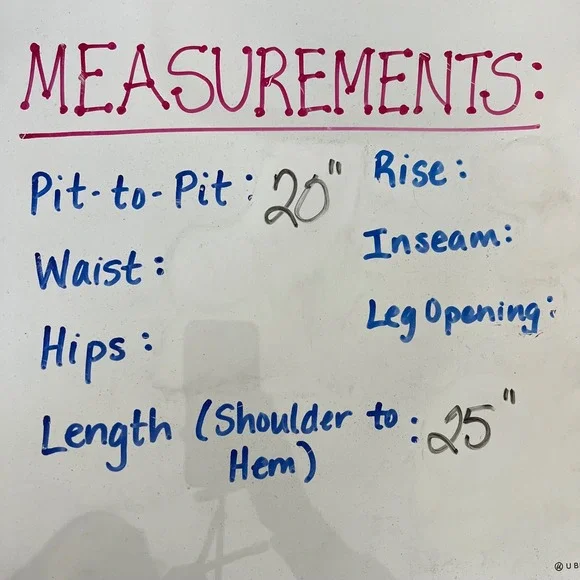 MEASUREMENTS:
Pit-to-Pit: 20"
Waist:
Hips:
Length (Shoulder to : 25"
Hem)
Rise:
Inseam:
Leg Opening:
UB